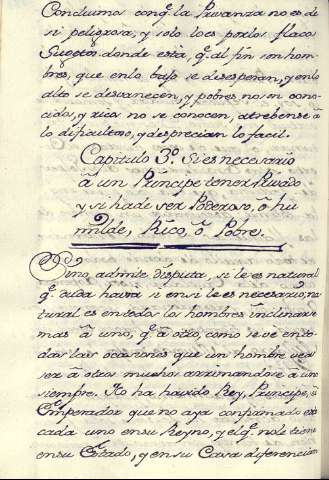 Concluimo conq.e la Privanza no es de
si peligrosa, y solo lo es por los flacos
Sugetos donde està, q.e al fin son hom
bres, que en lo bajo se desesperan, y en lo
alto se desvanecen, y pobres no son cono
cidos, y ricos no se conocen, atrebense à
lo dificultoso, y desprecian lo facil.
Capitulo 3.º Si es necesario
à un Principe tener Privado
y si hà de ser Poderoso, ò hu
milde, Rico, ò Pobre.
no admite disputa, si le es natural
q.e duda havrà si ensi le es necesario, na
tural es en todos los hombres inclinarse
mas à uno, q.e à otro, como se vè en to
das las ocasiones que un hombre vea
ser à otros muchos arrimandose à uno
siempre. No ha havido Rey, Principe, ù
Emperador que no aya confirmado es
cada uno en su Reyno, y el q.e no le tiene
en su Estado, y en su Casa diferencian